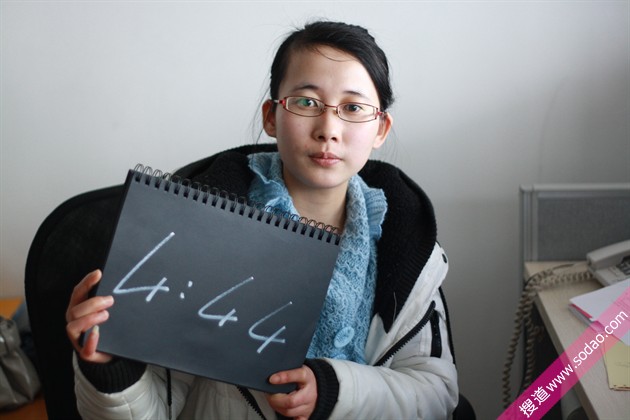 4:44
搜道 www.sodao.com